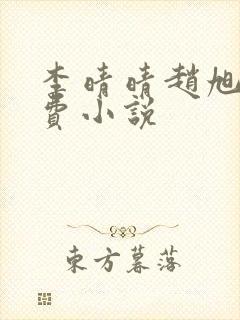 李晴晴趙旭
費小説
東方暮落